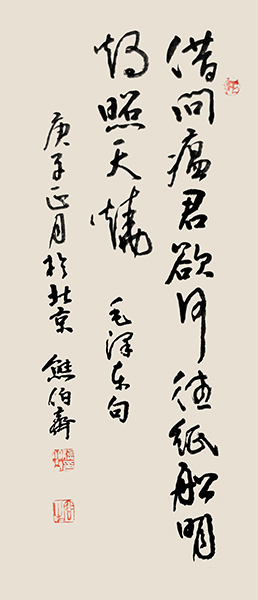 借问瘟君欲何往纸船明
烛照天烧 毛泽东句
庚子正月於北京 熊伯齐